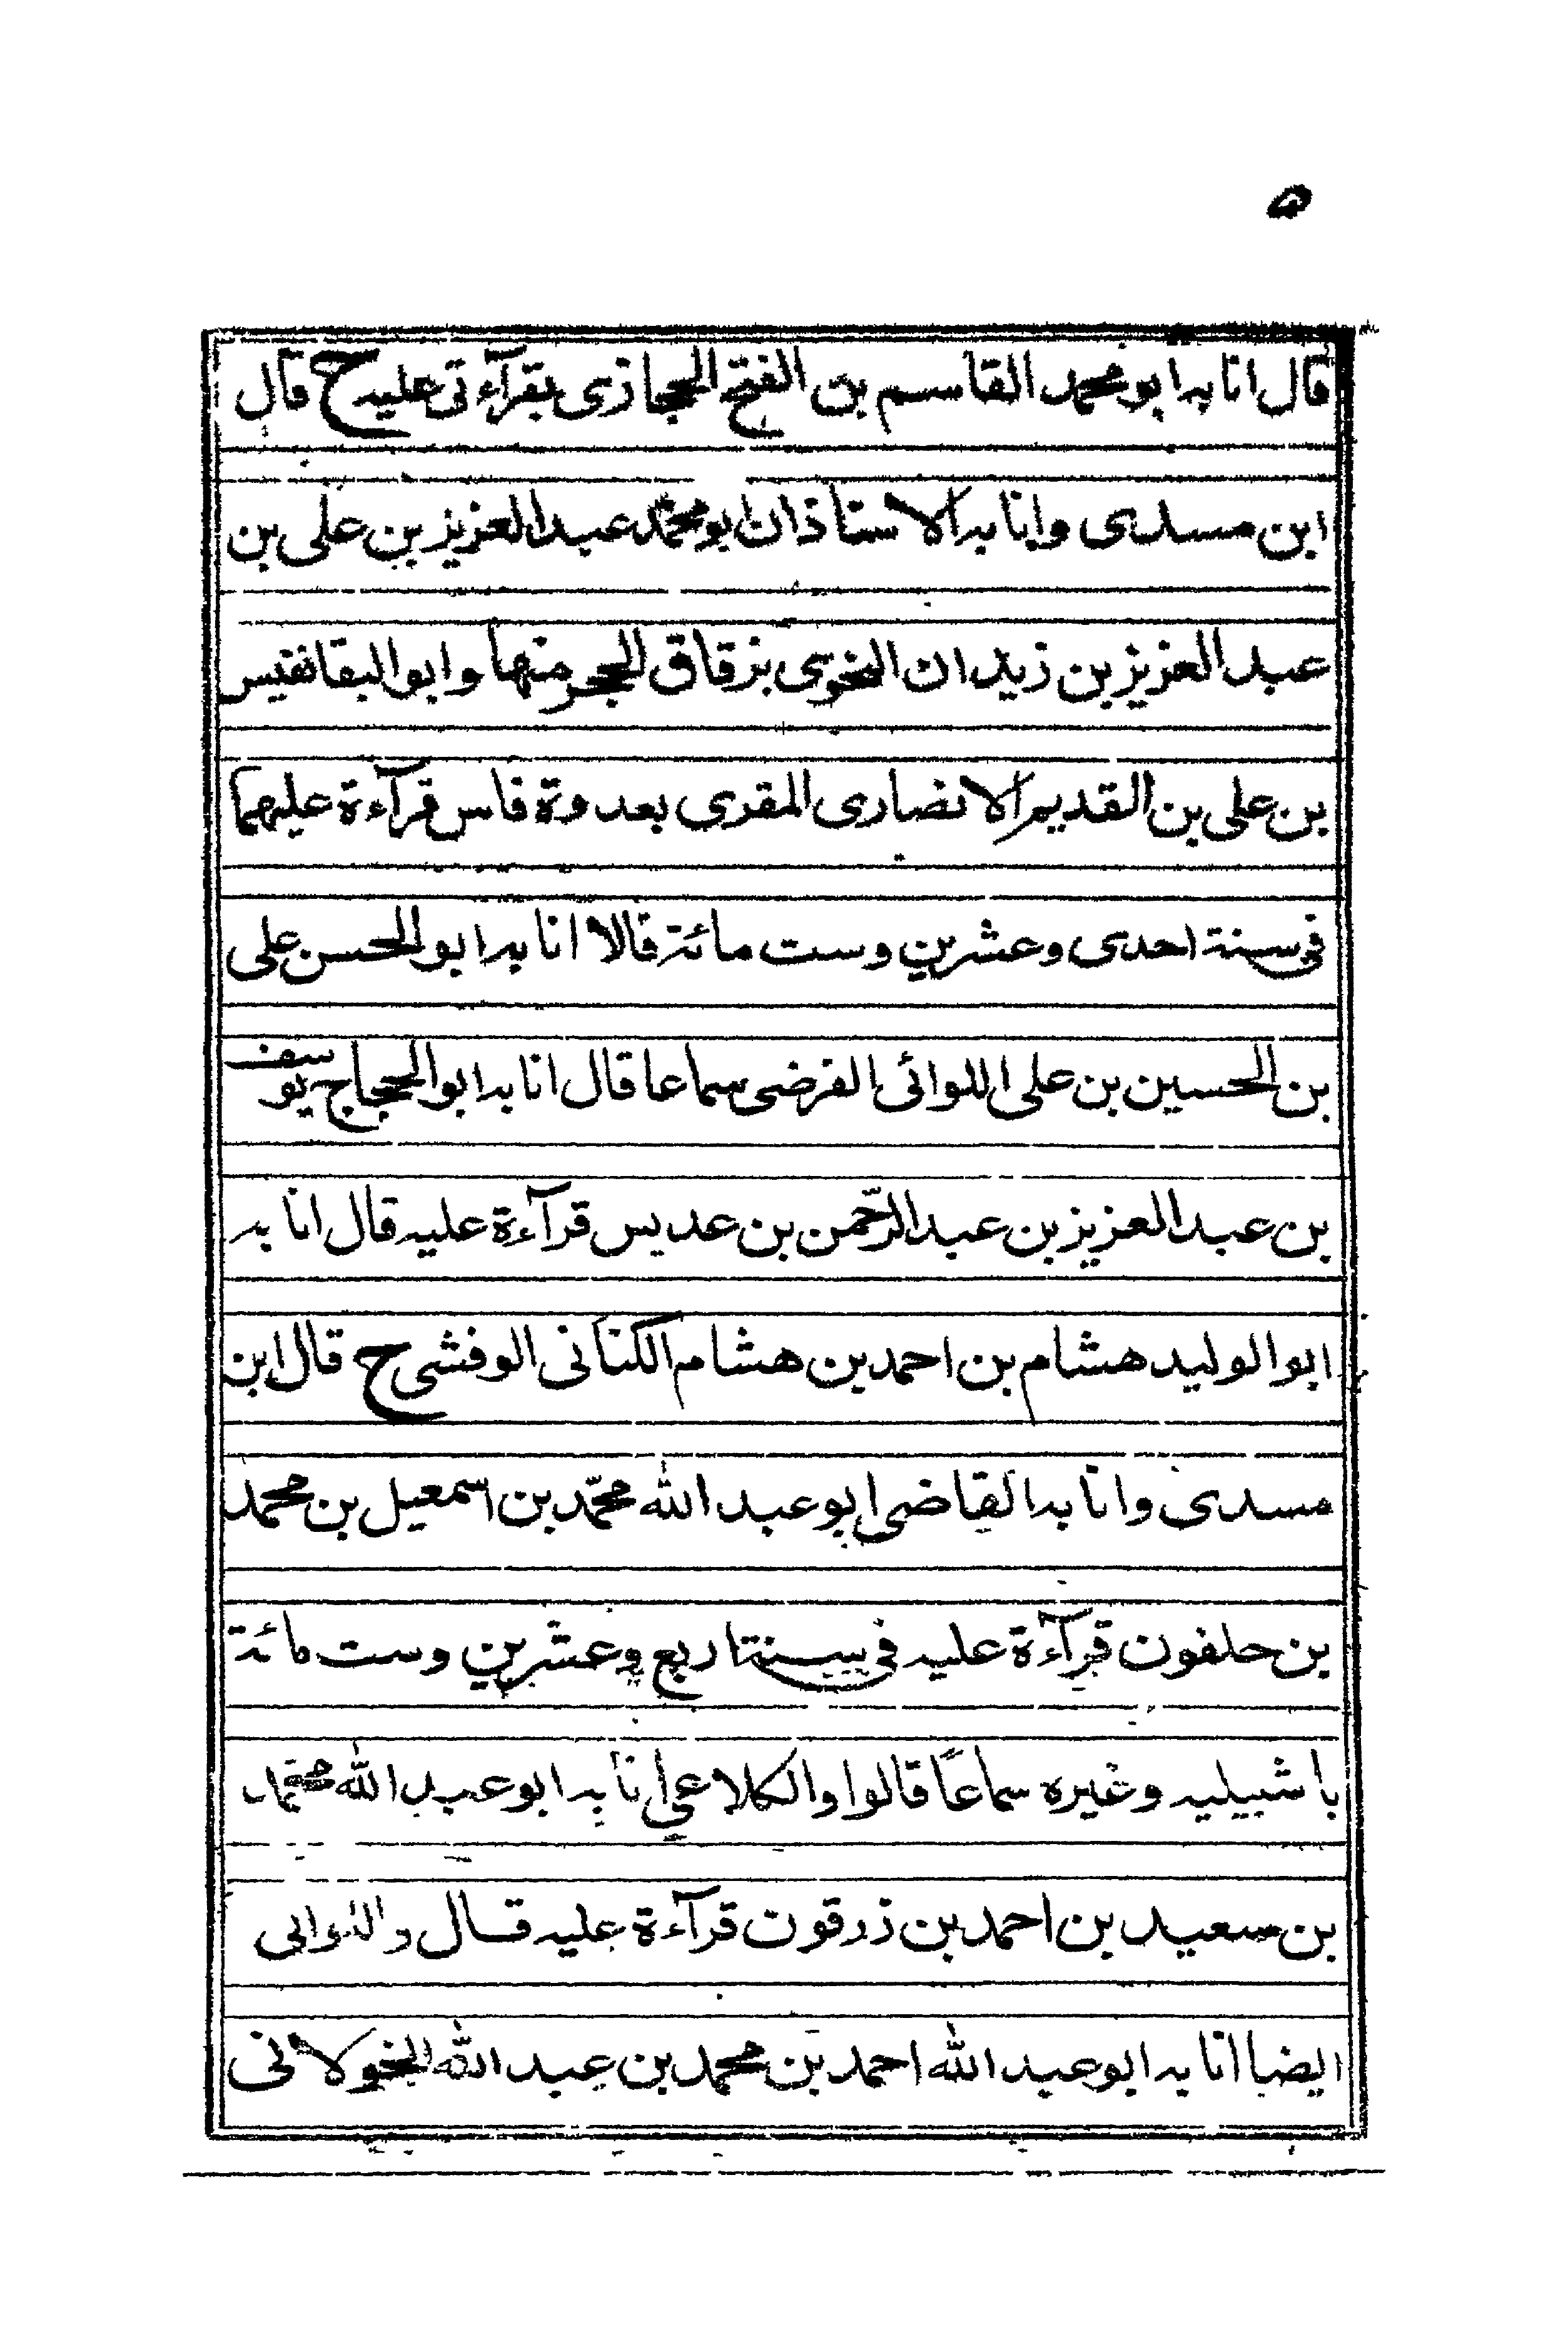 ٥
قال انا به ابو محمد القاسم بن الفتح الحجازى بقرآءتى عليه ح قال
ابن مسدى وانا به الاستاذان ابو محمّد عبد العزيز بن على بن
عبد العزيز بن زيدان النحوى بزقاق الحجر منها وابو البقا نفيس
بن على بن القديم الانصارى المقرى بعدوة فاس قرآءة عليهما
فى سنة احدى وعشرين وست مائة قالا انا به ابو الحسن على
بن الحسين بن على اللوائى الفرضى سماعا قال انا به ابو الحجاج يوسف
بن عبد العزيز بن عبد الرّحمن بن عديس قرآءة عليه قال انا به
ابو الوليد هشام بن احمد بن هشام الكنانى الوقشى ح قال ابن
مسدى وانا به القاضى ابو عبد الله محمّد بن اسمعيل بن محمد
بن خلفون قرآءة عليه فى سنة اربع وعشرين وست مائة
باشبيليه وغيره سماعًا قالوا والكلاعى انا به ابو عبد الله محمّد
بن سعيد بن احمد بن زرقون قرآءة عليه قال واللواتى
ايضا انا به ابو عبد الله احمد بن محمد بن عبد الله الخولانى